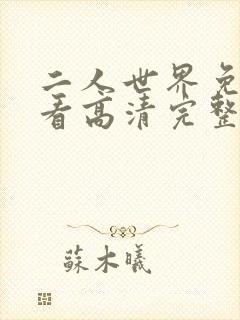 二人世界免
看高清完整
蘇木曦